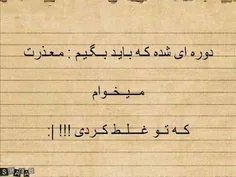 دوره ای شده که باید بگیم : معذرت
میخوام
که تو غلط کردی !!! |: